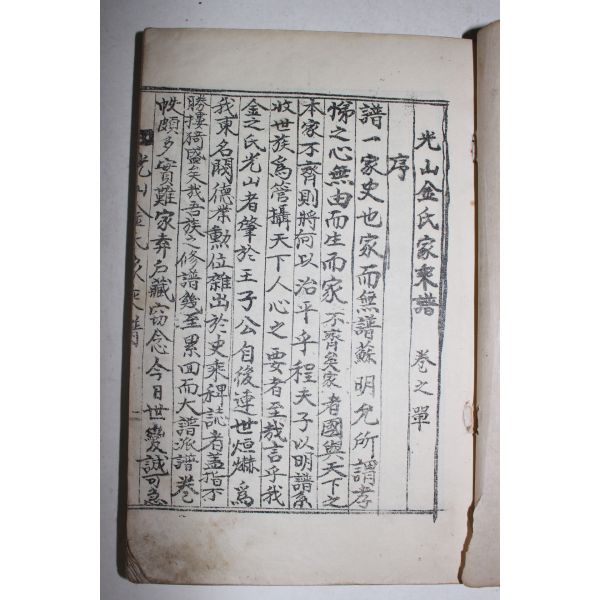 光山金氏家乘譜 卷之單
序
譜一家史也家而無譜蘇明允所謂孝
悌之心無由而生而家不齊矣家者國與天下之
本家不齊則將何以治平乎程夫子以明譜系
收世族爲管攝天下人心之要者至哉言乎我
金之氏光山者肇於王子公自後連世烜爀爲
我東名閥德業勳位雜出於史乘稗誌者盖指不
勝摟猗盛矣哉吾族之修譜幾至累回而大譜派譜卷
帙頗多實難家弆戶藏窃念今日世變誠可急
光山金氏家乘譜 一